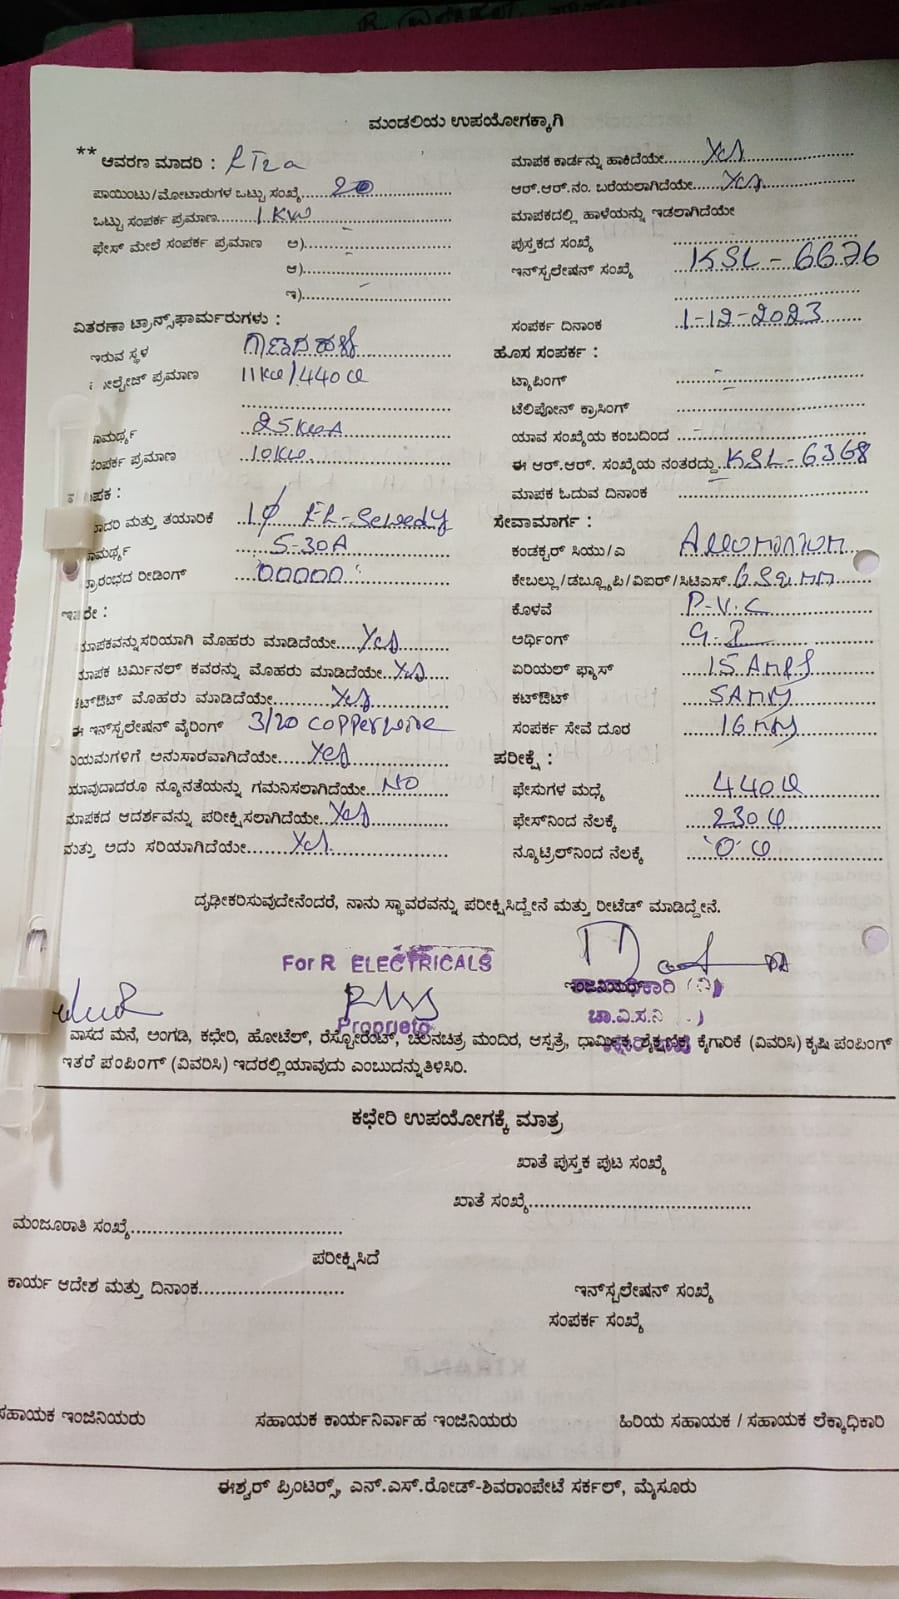 ಮಂಡಲಿಯ ಉಪಯೋಗಕ್ಕಾಗಿ
** ಆವರಣ ಮಾದರಿ :
ಪಾಯಿಂಟು/ಮೋಟಾರುಗಳ ಒಟ್ಟು ಸಂಖ್ಯೆ 20
ಒಟ್ಟು ಸಂಪರ್ಕ ಪ್ರಮಾಣ 1 KW
ಫೇಸ್ ಮೇಲೆ ಸಂಪರ್ಕ ಪ್ರಮಾಣ ಅ)
ಆ)
ಇ)
ವಿತರಣಾ ಟ್ರಾನ್ಸ್‌ಫಾರ್ಮರುಗಳು :
ಇರುವ ಸ್ಥಳ
ಪ್ರಮಾಣ 11KV/440V
25KVA
ಸಂಪರ್ಕ ಪ್ರಮಾಣ 10KW
ಮತ್ತು ತಯಾರಿಕೆ 1φ
5-30A
ರೀಡಿಂಗ್ 00000
ಇತರೇ :
ಮಾಪಕವನ್ನು ಸರಿಯಾಗಿ ಮೊಹರು ಮಾಡಿದೆಯೇ Yes
ಮಾಪಕ ಟರ್ಮಿನಲ್ ಕವರನ್ನು ಮೊಹರು ಮಾಡಿದೆಯೇ Yes
ಕಟ್‌ಔಟ್ ಮೊಹರು ಮಾಡಿದೆಯೇ Yes
ಈ ಇನ್‌ಸ್ಟಲೇಷನ್ ವೈರಿಂಗ್ 3/20 copper wire
ನಿಯಮಗಳಿಗೆ ಅನುಸಾರವಾಗಿದೆಯೇ Yes
ಯಾವುದಾದರೂ ನ್ಯೂನತೆಯನ್ನು ಗಮನಿಸಲಾಗಿದೆಯೇ NO
ಮಾಪಕದ ಆದರ್ಶವನ್ನು ಪರೀಕ್ಷಿಸಲಾಗಿದೆಯೇ Yes
ಮತ್ತು ಅದು ಸರಿಯಾಗಿದೆಯೇ Yes
ಮಾಪಕ ಕಾರ್ಡನ್ನು ಹಾಕಿದೆಯೇ Yes
ಆರ್.ಆರ್.ನಂ. ಬರೆಯಲಾಗಿದೆಯೇ Yes
ಮಾಪಕದಲ್ಲಿ ಹಾಳೆಯನ್ನು ಇಡಲಾಗಿದೆಯೇ
ಪುಸ್ತಕದ ಸಂಖ್ಯೆ
ಇನ್‌ಸ್ಟಲೇಷನ್ ಸಂಖ್ಯೆ KSL-6676
ಸಂಪರ್ಕ ದಿನಾಂಕ 1-12-2023
ಹೊಸ ಸಂಪರ್ಕ :
ಟ್ಯಾಪಿಂಗ್
ಟೆಲಿಫೋನ್ ಕ್ರಾಸಿಂಗ್
ಯಾವ ಸಂಖ್ಯೆಯ ಕಂಬದಿಂದ
ಈ ಆರ್.ಆರ್. ಸಂಖ್ಯೆಯ ನಂತರದ್ದು KSL-6368
ಮಾಪಕ ಓದುವ ದಿನಾಂಕ
ಸೇವಾಮಾರ್ಗ :
ಕಂಡಕ್ಟರ್ ಸಿಯು/ಎ
ಕೇಬಲ್ಲು/ಡಬ್ಲ್ಯೂಪಿ/ವಿಐಆರ್/ಸಿಟಿಎಸ್
ಕೊಳವೆ P-V.C
ಅರ್ಥಿಂಗ್ G.I
ಏರಿಯಲ್ ಫ್ಯೂಸ್ 15 Amps
ಕಟ್‌ಔಟ್
ಸಂಪರ್ಕ ಸೇವೆ ದೂರ
ಪರೀಕ್ಷೆ :
ಫೇಸುಗಳ ಮಧ್ಯೆ 440V
ಫೇಸ್‌ನಿಂದ ನೆಲಕ್ಕೆ 230V
ನ್ಯೂಟ್ರಲ್‌ನಿಂದ ನೆಲಕ್ಕೆ '0' V
ದೃಢೀಕರಿಸುವುದೇನೆಂದರೆ, ನಾನು ಸ್ಥಾವರವನ್ನು ಪರೀಕ್ಷಿಸಿದ್ದೇನೆ ಮತ್ತು ರೀಟೆಡ್ ಮಾಡಿದ್ದೇನೆ.
For R ELECTRICALS
ಚಾ.ವಿ.ಸ.ನಿ
ವಾಸದ ಮನೆ, ಅಂಗಡಿ, ಕಛೇರಿ, ಹೋಟೆಲ್, ರೆಸ್ಟೋರೆಂಟ್, ಚಲನಚಿತ್ರ ಮಂದಿರ, ಆಸ್ಪತ್ರೆ, ಧಾರ್ಮಿಕ, ಶೈಕ್ಷಣಿಕ, ಕೈಗಾರಿಕೆ (ವಿವರಿಸಿ) ಕೃಷಿ ಪಂಪಿಂಗ್
ಇತರೆ ಪಂಪಿಂಗ್ (ವಿವರಿಸಿ) ಇದರಲ್ಲಿ ಯಾವುದು ಎಂಬುದನ್ನು ತಿಳಿಸಿರಿ.
ಕಛೇರಿ ಉಪಯೋಗಕ್ಕೆ ಮಾತ್ರ
ಖಾತೆ ಪುಸ್ತಕ ಪುಟ ಸಂಖ್ಯೆ
ಖಾತೆ ಸಂಖ್ಯೆ
ಮಂಜೂರಾತಿ ಸಂಖ್ಯೆ
ಪರೀಕ್ಷಿಸಿದೆ
ಕಾರ್ಯ ಆದೇಶ ಮತ್ತು ದಿನಾಂಕ
ಇನ್‌ಸ್ಟಲೇಷನ್ ಸಂಖ್ಯೆ
ಸಂಪರ್ಕ ಸಂಖ್ಯೆ
ಸಹಾಯಕ ಇಂಜಿನಿಯರು ಸಹಾಯಕ ಕಾರ್ಯನಿರ್ವಾಹ ಇಂಜಿನಿಯರು ಹಿರಿಯ ಸಹಾಯಕ / ಸಹಾಯಕ ಲೆಕ್ಕಾಧಿಕಾರಿ
ಈಶ್ವರ್ ಪ್ರಿಂಟರ್ಸ್, ಎನ್.ಎಸ್.ರೋಡ್-ಶಿವರಾಂಪೇಟೆ ಸರ್ಕಲ್, ಮೈಸೂರು